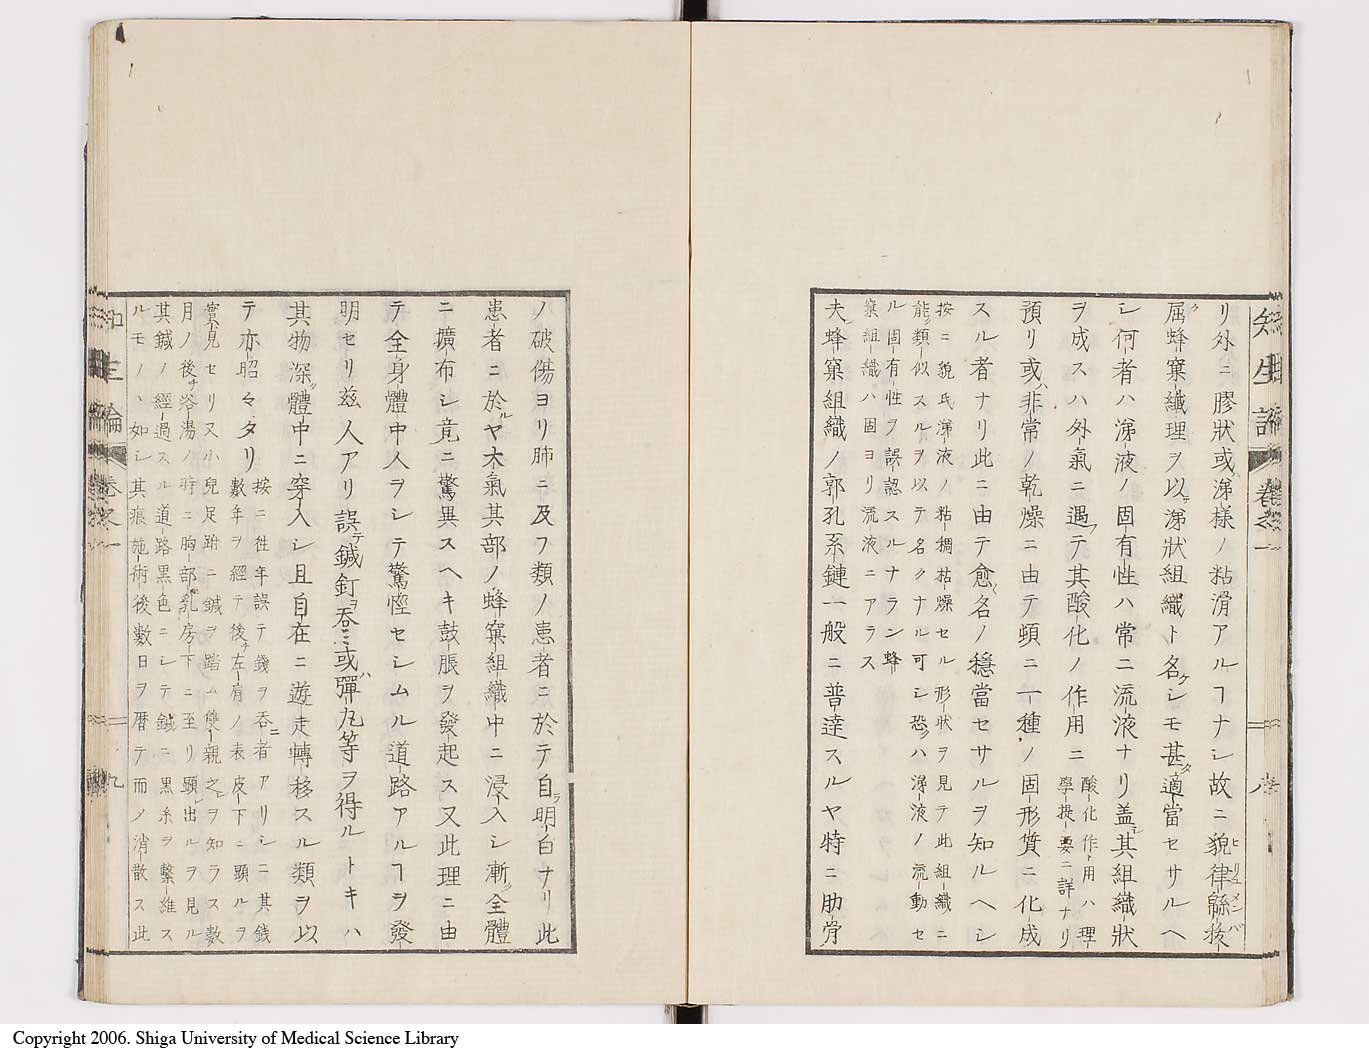 知生論 卷之一
リ外ニ膠狀或ハ涕樣ノ粘滑アルヿナシ故ニ貌律緜拔ヒリュメンバ
屬蜂窠纎理ヲ以テ涕狀組織ト名ケシモ甚タ適當セサルヘ
シ何者ハ涕液ノ固有性ハ常ニ流液ナリ蓋シ其組織狀
ヲ成スハ外氣ニ遇フテ其酸化ノ作用ニ酸化作用ハ理學提要ニ詳ナリ
預リ或ハ非常ノ乾燥ニ由テ頓ニ一種ノ固形質ニ化成
スル者ナリ此ニ由テ愈〻名ノ穩當セサルヲ知ルヘシ
按ニ貌氏涕液ノ粘稠粘燥セル形狀ヲ見テ此組織ニ
能ク類似スルヲ以テ名クナル可シ恐クハ涕液ノ流動セ
ル固有性ヲ誤認スルナラン蜂
窠組織ハ固ヨリ流液ニアラス
夫レ蜂窠組織ノ郭孔系鏈一般ニ普達スルヤ特ニ肋骨
ノ破傷ヨリ肺ニ及フ類ノ患者ニ於テ自ラ明白ナリ此
患者ニ於ルヤ大氣其部ノ蜂窠組織中ニ浸入シ漸ク全體
ニ擴布シ竟ニ驚異スヘキ鼓脹ヲ發起ス又此理ニ由
テ全身體中人ヲシテ驚慳セシムル道路アルヿヲ發
明セリ茲人アリ誤テ鍼釘ヲ呑ミ或ハ彈丸等ヲ得ルトキハ
其物深ク體中ニ穿入シ且自在ニ遊走轉移スル類ヲ以
テ亦昭々タリ按ニ往年誤テ錢ヲ呑ニ者アリシニ其錢
數年ヲ經テ後チ左肩ノ表皮下ニ顯ルヲ
實見セリ又小兒足跗ニ鍼ヲ踏ム雙親之レヲ知ラス數
月ノ後チ浴湯ノ時ニ胸部乳房下ニ至リ顯レ出ルヲ見ル
其鍼ノ經過スル道路黑色ニシテ鍼ニ黑糸ヲ繫維ス
ルモノヽ如シ其痕施術後數日ヲ曆テ而ノ消散ス此
知生論 卷之一 九
Copyright 2006. Shiga University of Medical Science Library